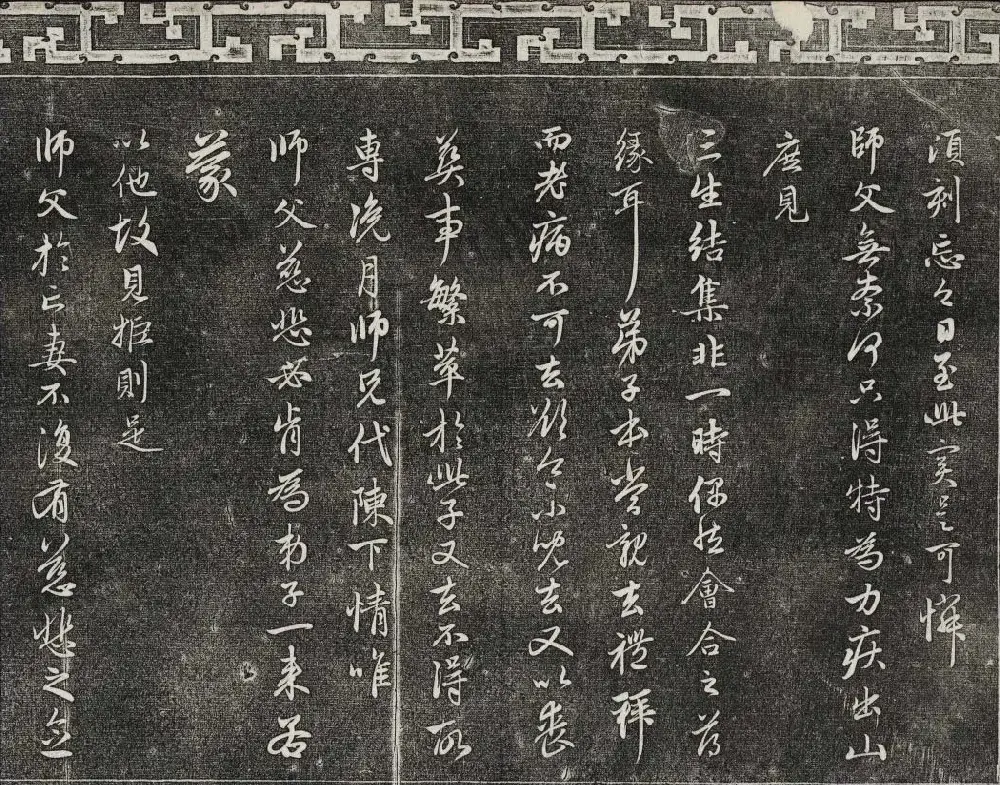 須刻忘之日至此實是可憐
師父無奈何只得特為力疾出山
庶見
三生結集非一時偶然會合之薄
緣耳弟子本當親去禮拜
而老病不可去欲令小兒去又以喪
葬事繁萃於此子又去不得故
專浼月師兄代陳下情唯
師父慈悲必肯為弟子一來若
蒙
以他故見拒則是
師父於亡妻不復有慈悲之念